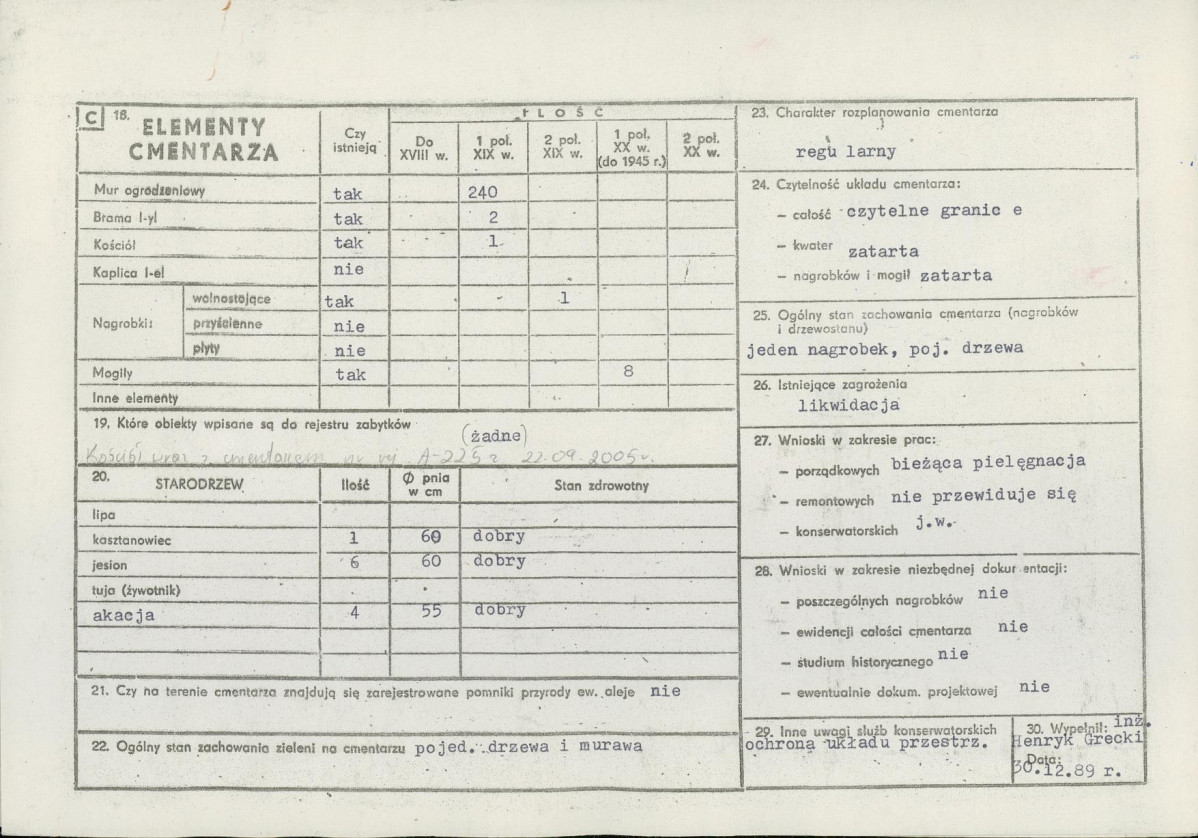 C 18. ELEMENTY CMENTARZA
Czy istnieją
IŁOŚĆ
Do XVIII w.
1 poł. XIX w.
2 poł. XIX w.
1 poł. XX w. (do 1945 r.)
2 poł. XX w.
Mur ogrodzeniowy tak 240
Brama l-yl tak 2
Kościół tak 1
Kaplica l-el nie
Nagrobki: wolnostojące tak 1
przyścienne nie
płyty nie
Mogiły tak 8
Inne elementy
19. Które obiekty wpisane są do rejestru zabytków (żadne)
Kościół wraz z cmentarzem nr rej. A-225 z 22.09.2005r.
20. STARODRZEW Ilość Ø pnia w cm Stan zdrowotny
lipa
kasztanowiec 1 60 dobry
jesion 6 60 dobry
tuja (żywotnik)
akacja 4 55 dobry
21. Czy na terenie cmentarza znajdują się zarejestrowane pomniki przyrody ew. aleje nie
22. Ogólny stan zachowania zieleni na cmentarzu pojed. drzewa i murawa
23. Charakter rozplanowania cmentarza
regu larny
24. Czytelność układu cmentarza:
— całość czytelne granic e
— kwater zatarta
— nagrobków i mogił zatarta
25. Ogólny stan zachowania cmentarza (nagrobków
i drzewostanu)
jeden nagrobek, poj. drzewa
26. Istniejące zagrożenia
likwidacja
27. Wnioski w zakresie prac:
— porządkowych bieżąca pielęgnacja
— remontowych nie przewiduje się
— konserwatorskich j.w.
28. Wnioski w zakresie niezbędnej dokumentacji:
— poszczególnych nagrobków nie
— ewidencji całości cmentarza nie
— studium historycznego nie
— ewentualnie dokum. projektowej nie
29. Inne uwagi służb konserwatorskich
ochrona układu przestrz.
30. Wypełnił: inż.
Henryk Grecki
Data:
30.12.89 r.